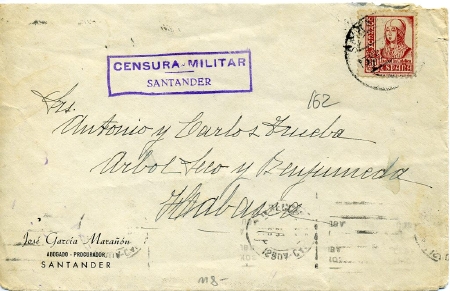 CENSURA MILITAR
SANTANDER
162
Srs.
Antonio y Carlos Trueba
Arbol Seco y Benjumeda
Habana
José García Marañón
ABOGADO - PROCURADOR
SANTANDER
118-